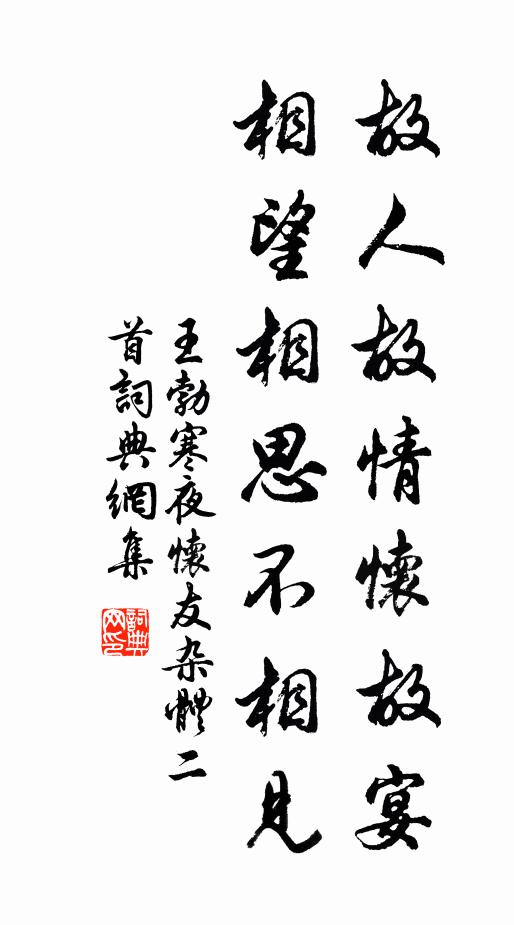 故人故情懷故宴
相望相思不相見
王勃寒夜懷友杂體二
首詞典網集
詞典
网印